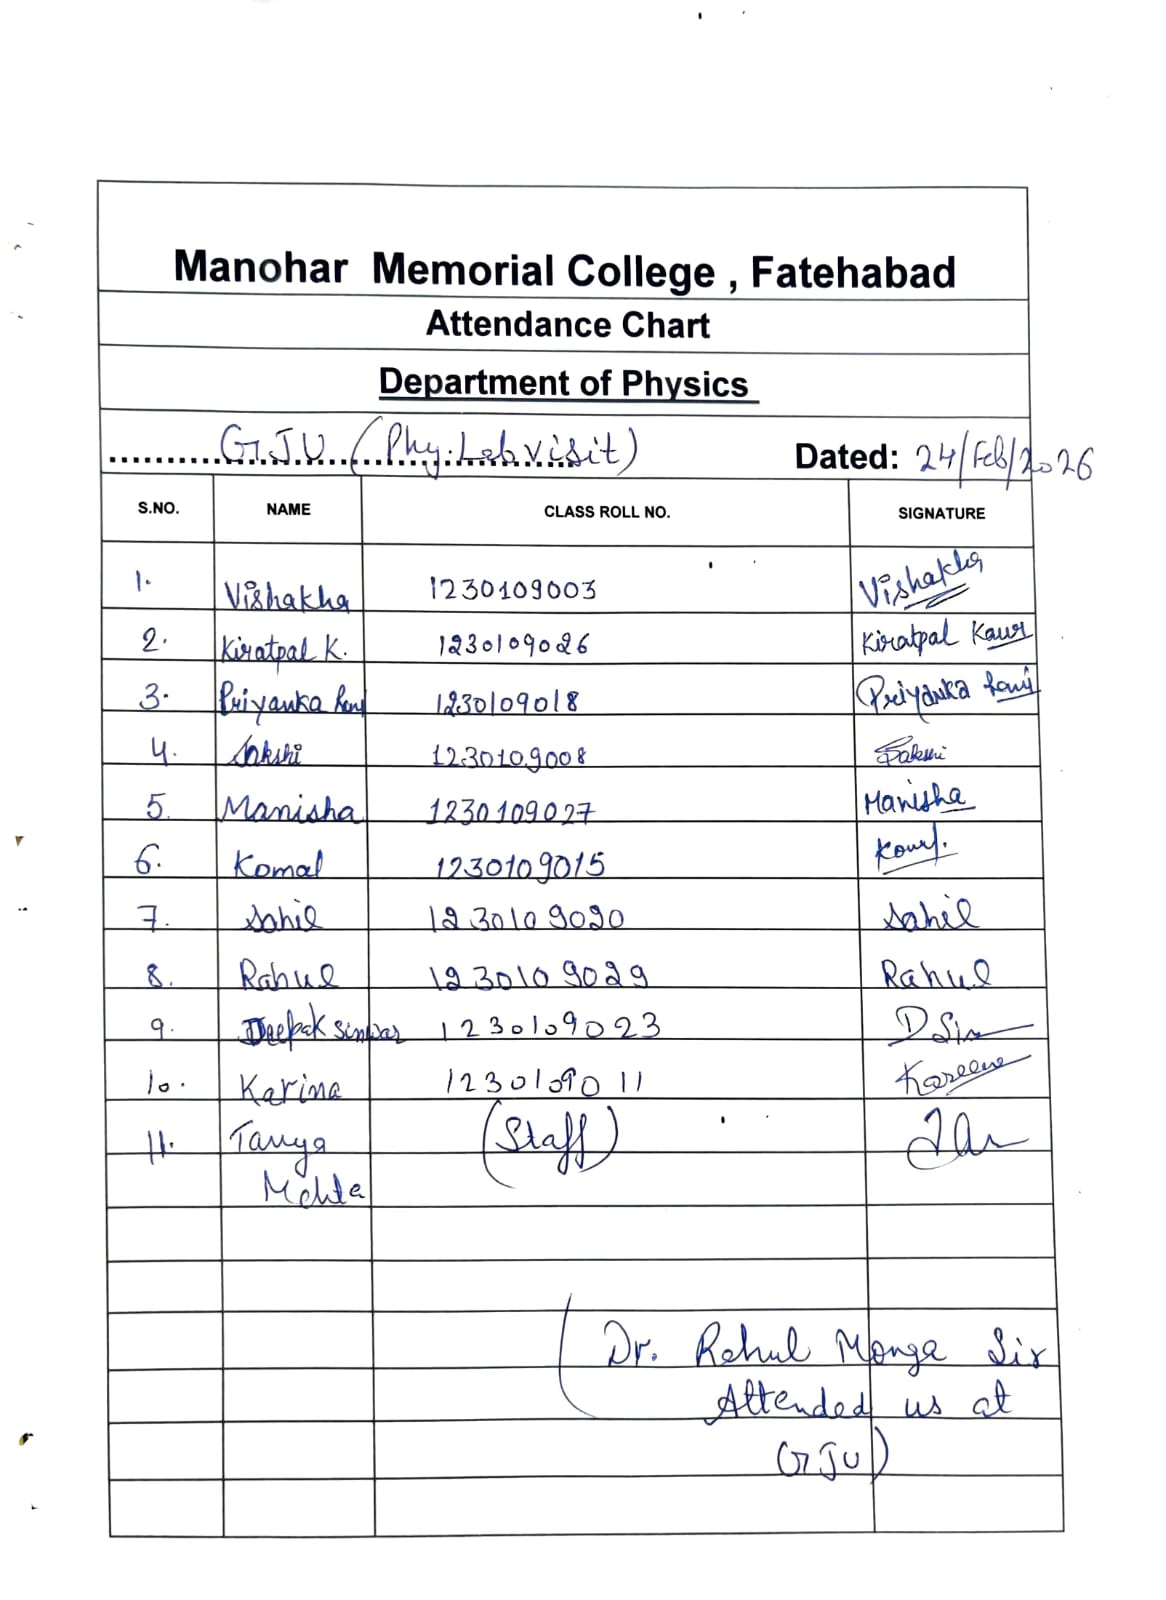 Manohar Memorial College , Fatehabad
Attendance Chart
Department of Physics
GJU (Phy. Lab visit) Dated: 24/Feb/2026
S.NO. NAME CLASS ROLL NO. SIGNATURE
1. Vishakha 1230109003 Vishakha
2. Kiratpal K. 1230109026 Kiratpal Kaur
3. Priyanka 1230109018 Priyanka
4. Sakshi 1230109008 Sakshi
5. Manisha 1230109027 Manisha
6. Komal 1230109015
7. Sahil 1230109020 Sahil
8. Rahul 1230109029 Rahul
9. Deepak Sinwar 1230109023 D Sin
10. Karina 1230109011 Kareena
11. Tanya (Staff)
Mehta
(Dr. Rahul Monga Sir
Attended us at
GJU)